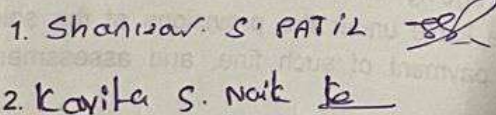 1. Shankar. S. PATiL
2. Kavita S. Naik